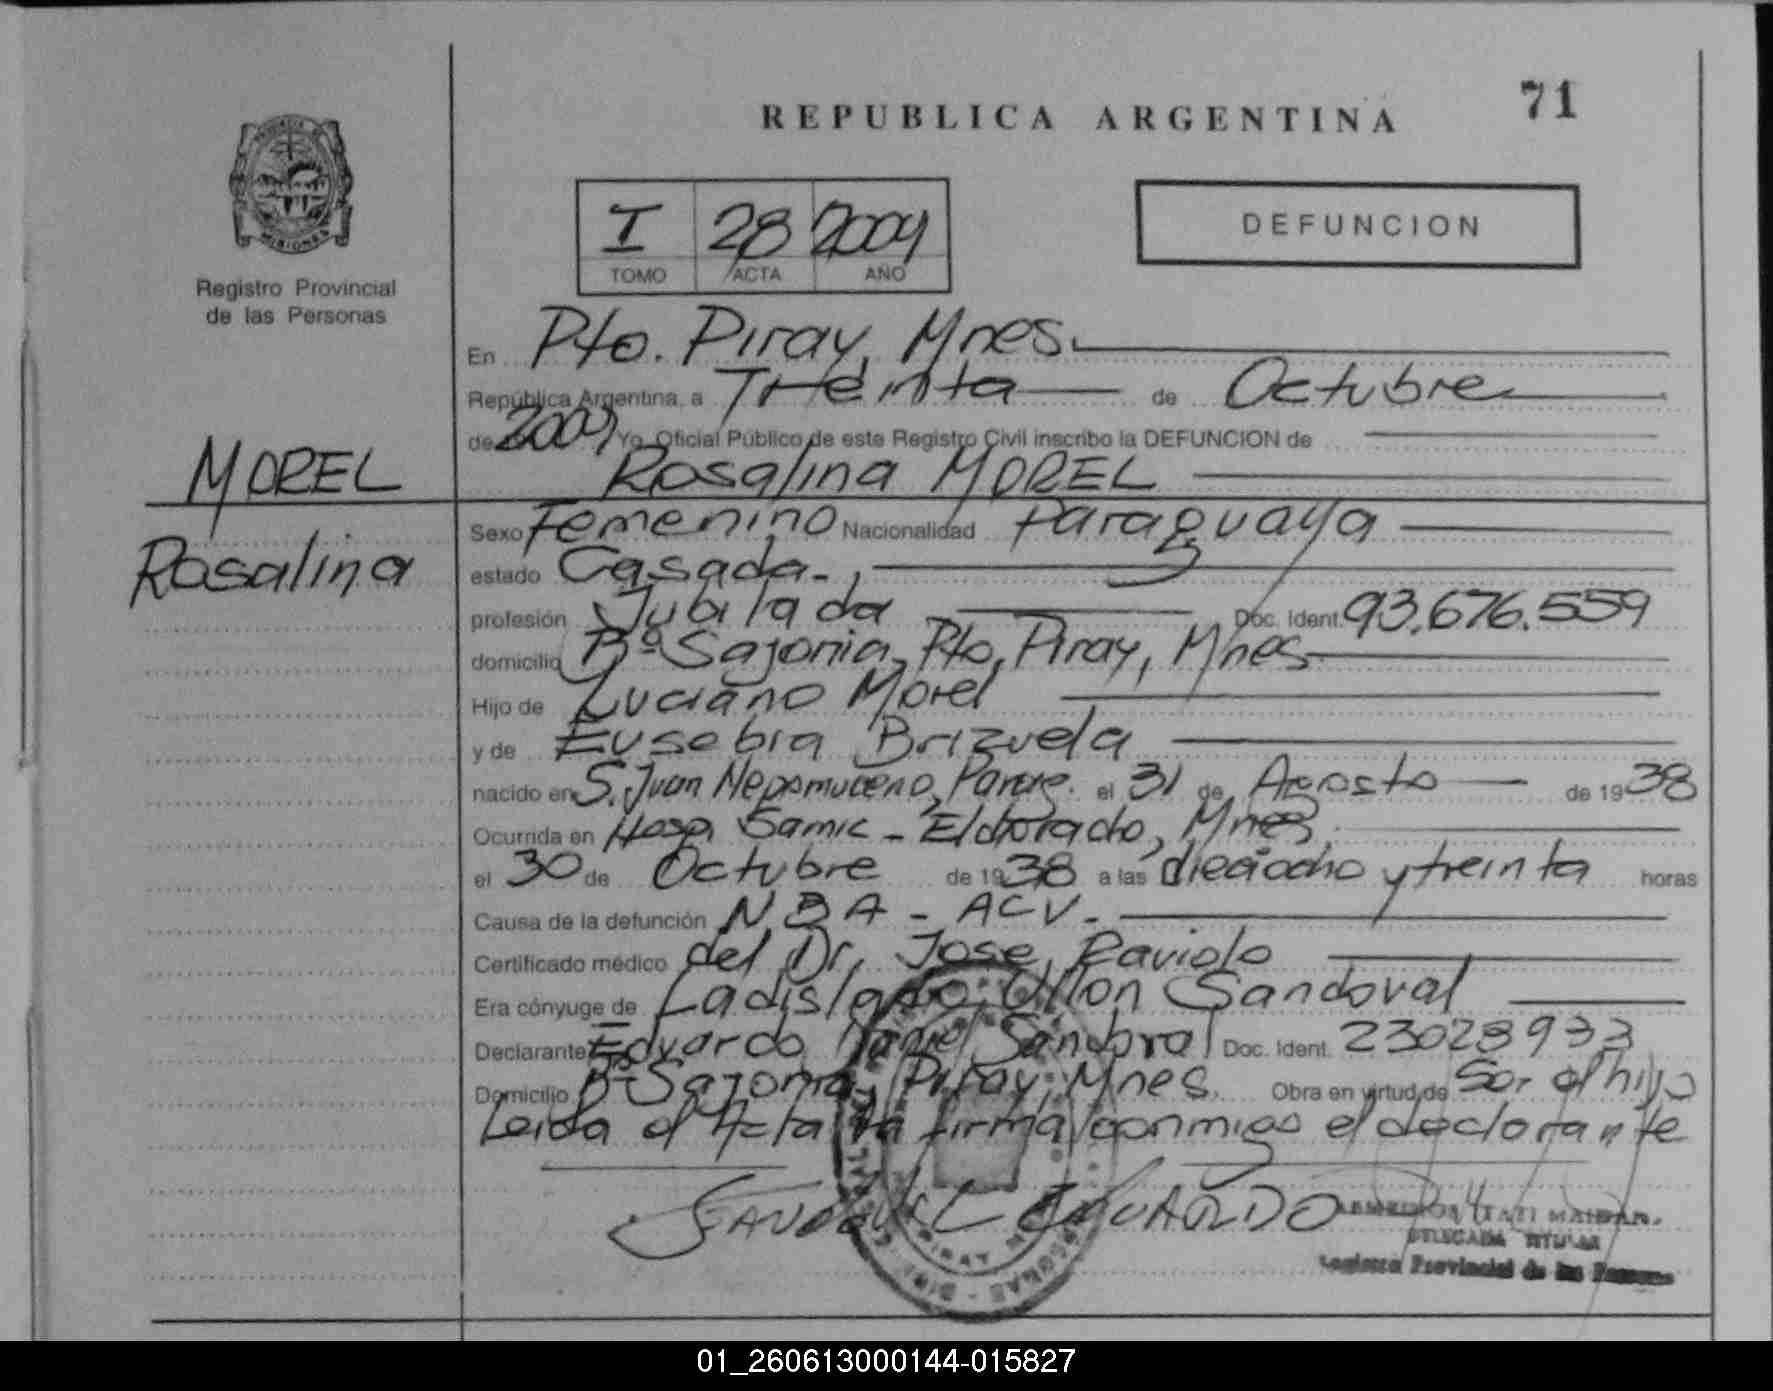 REPUBLICA ARGENTINA
71
PROVINCIA DE
MISIONES
Registro Provincial
de las Personas
I 28 2009
TOMO ACTA AÑO
DEFUNCION
En Pto. Piray, Mnes.
República Argentina, a Treinta de Octubre
de 2009 Yo, Oficial Público de este Registro Civil inscribo la DEFUNCION de
Rosalina MOREL
MOREL
Rosalina
Sexo Femenino Nacionalidad Paraguaya
estado Casada.
profesión Jubilada Doc. Ident. 93.676.559
domicilio Bº Sajonia, Pto. Piray, Mnes
Hijo de Luciano Morel
y de Eusebia Brizuela
nacido en S. Juan Nepomuceno, Parag. el 31 de Agosto de 1938
Ocurrida en Hosp. Samic - Eldorado, Mnes
el 30 de Octubre de 1938 a las dieciocho y treinta horas
Causa de la defunción NBA - ACV.
Certificado médico del Dr. Jose Raviolo
Era cónyuge de Ladislado Sandoval
Declarante Eduardo Daniel Sandoval Doc. Ident.
Domicilio Bº Sajonia, Piray, Mnes. Obra en virtud de Ser el hijo
Leida el Acta la firma conmigo el declarante
SANDOVAL EDUARDO
DELEGADA TITULAR
Registro Provincial de las Personas
01_260613000144-015827